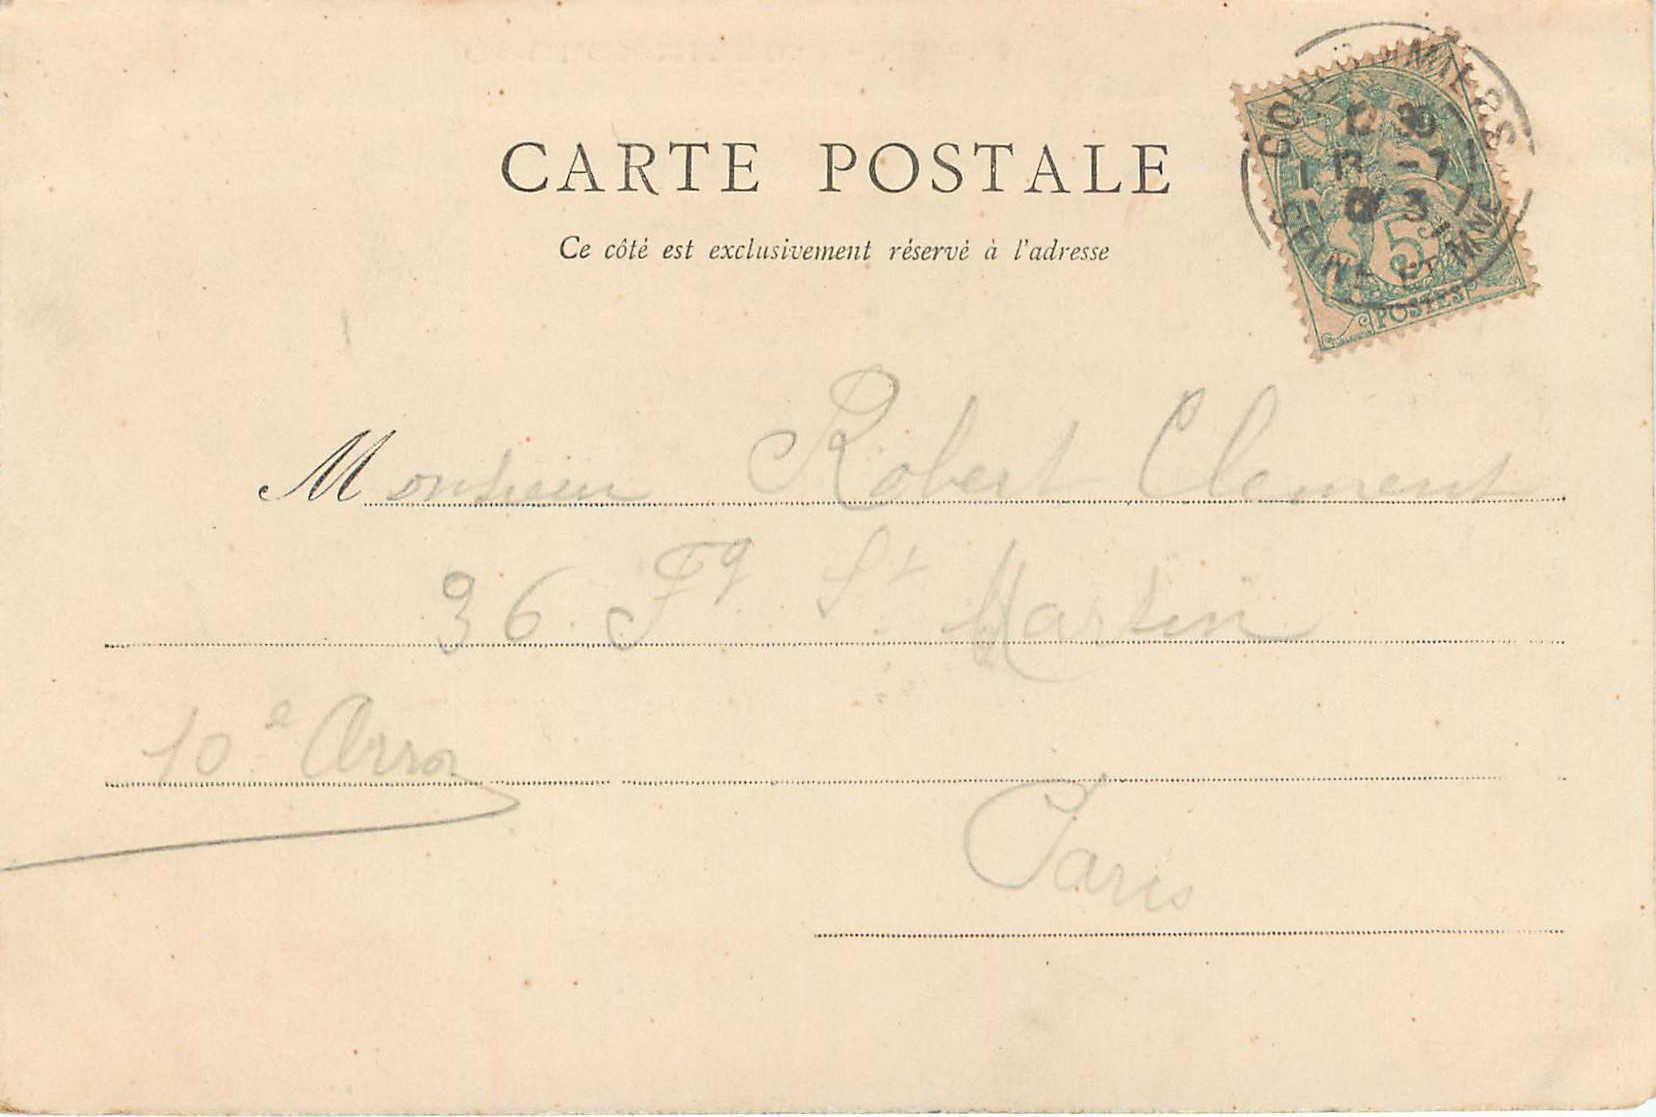 CARTE POSTALE
Ce côté est exclusivement réservé à l'adresse
COULOMMIERS
12 30
13 -7
03
SEINE ET MNE
5
POSTES
Monsieur Robert Clement
36 Fg St Martin
10e Arron
Paris